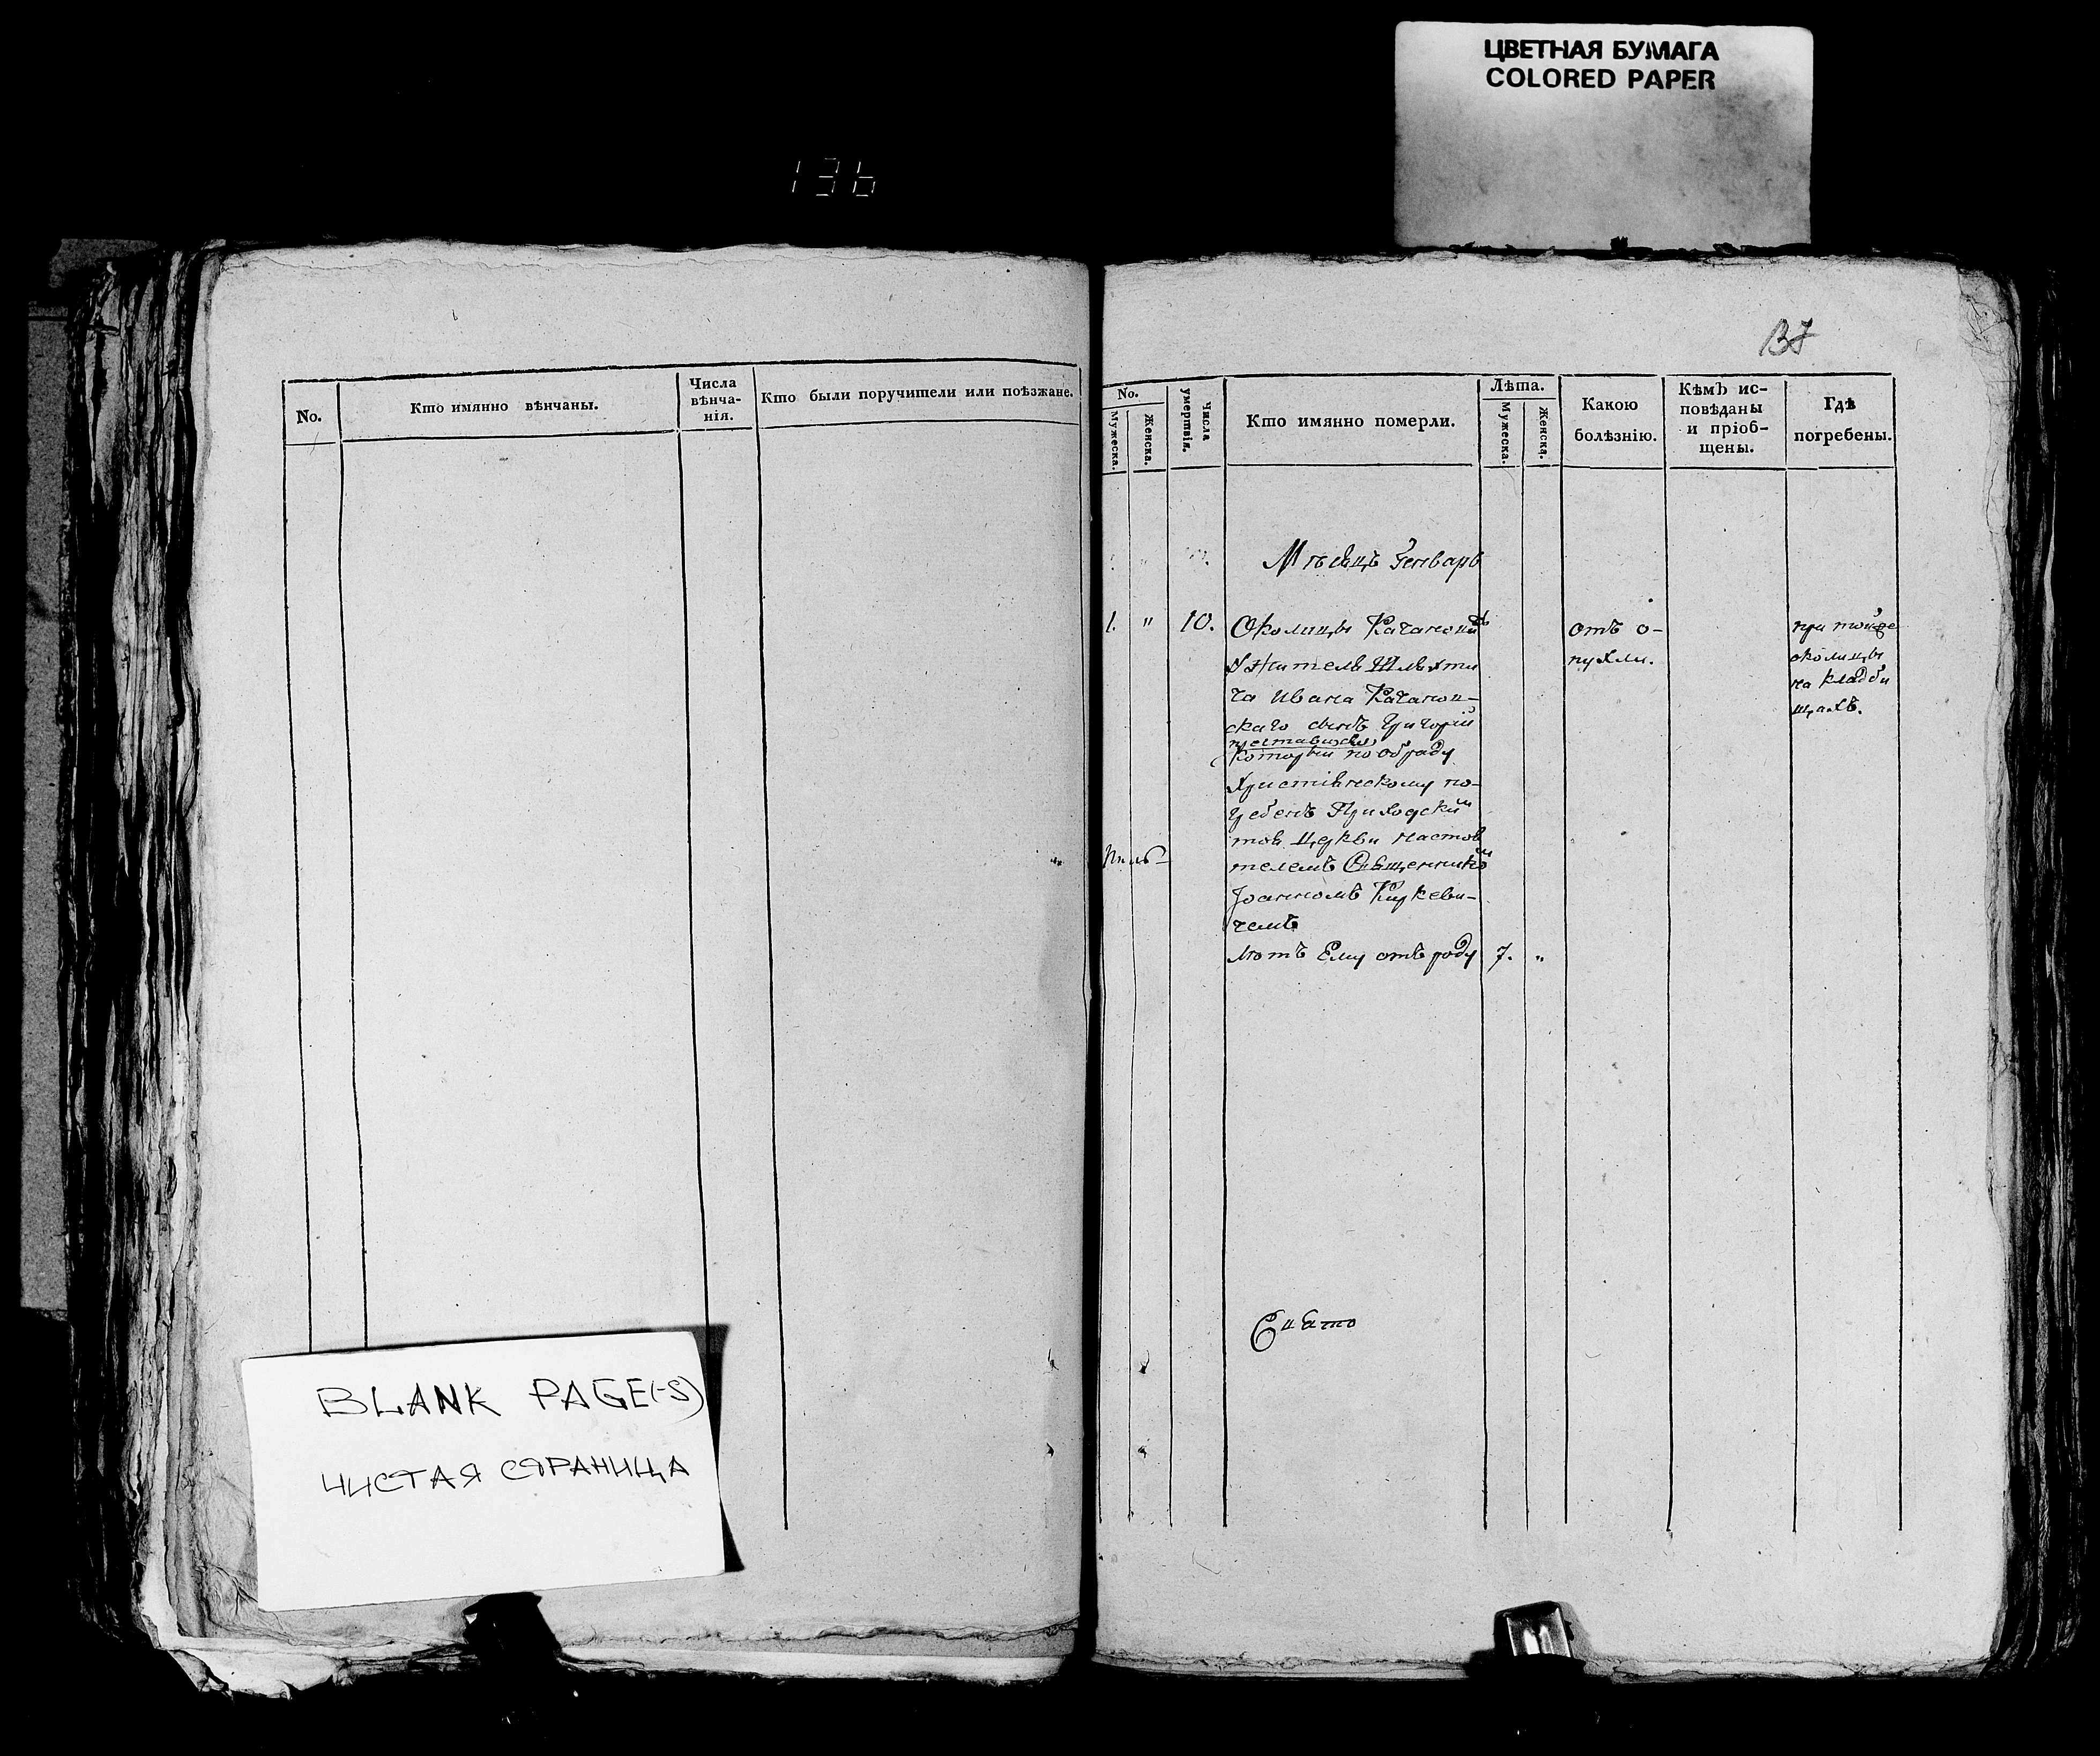 ЦВЕТНАЯ БУМАГА
COLORED PAPER
136
137
No.
Кто имянно вѣнчаны.
Числа вѣнча-
нія.
Кто были поручители или поѣзжане.
No.
Мужеска.
Женска.
Числа умертвія.
Кто имянно померли.
Лѣта.
Мужеска.
Женска.
Какою
болѣзнію.
Кѣмъ ис-
повѣданы
и пріоб-
щены.
Гдѣ
погребены.
Мѣсяцъ Генварь
1. " 10. Околицы
Жители Шляхти
ча Ивана Качанов-
скаго сынъ Григорій
преставился
который по обряду
Христіянскому по-
гребенъ Приходским
той Церкви настоя
телемъ Священником
Іоанномъ
чемъ
Лѣтъ Ему отъ роду 7. "
отъ о-
пухли.
при той же
околицы
на кладби
щахъ.
BLANK PAGE(-S)
ЧИСТАЯ СТРАНИЦА